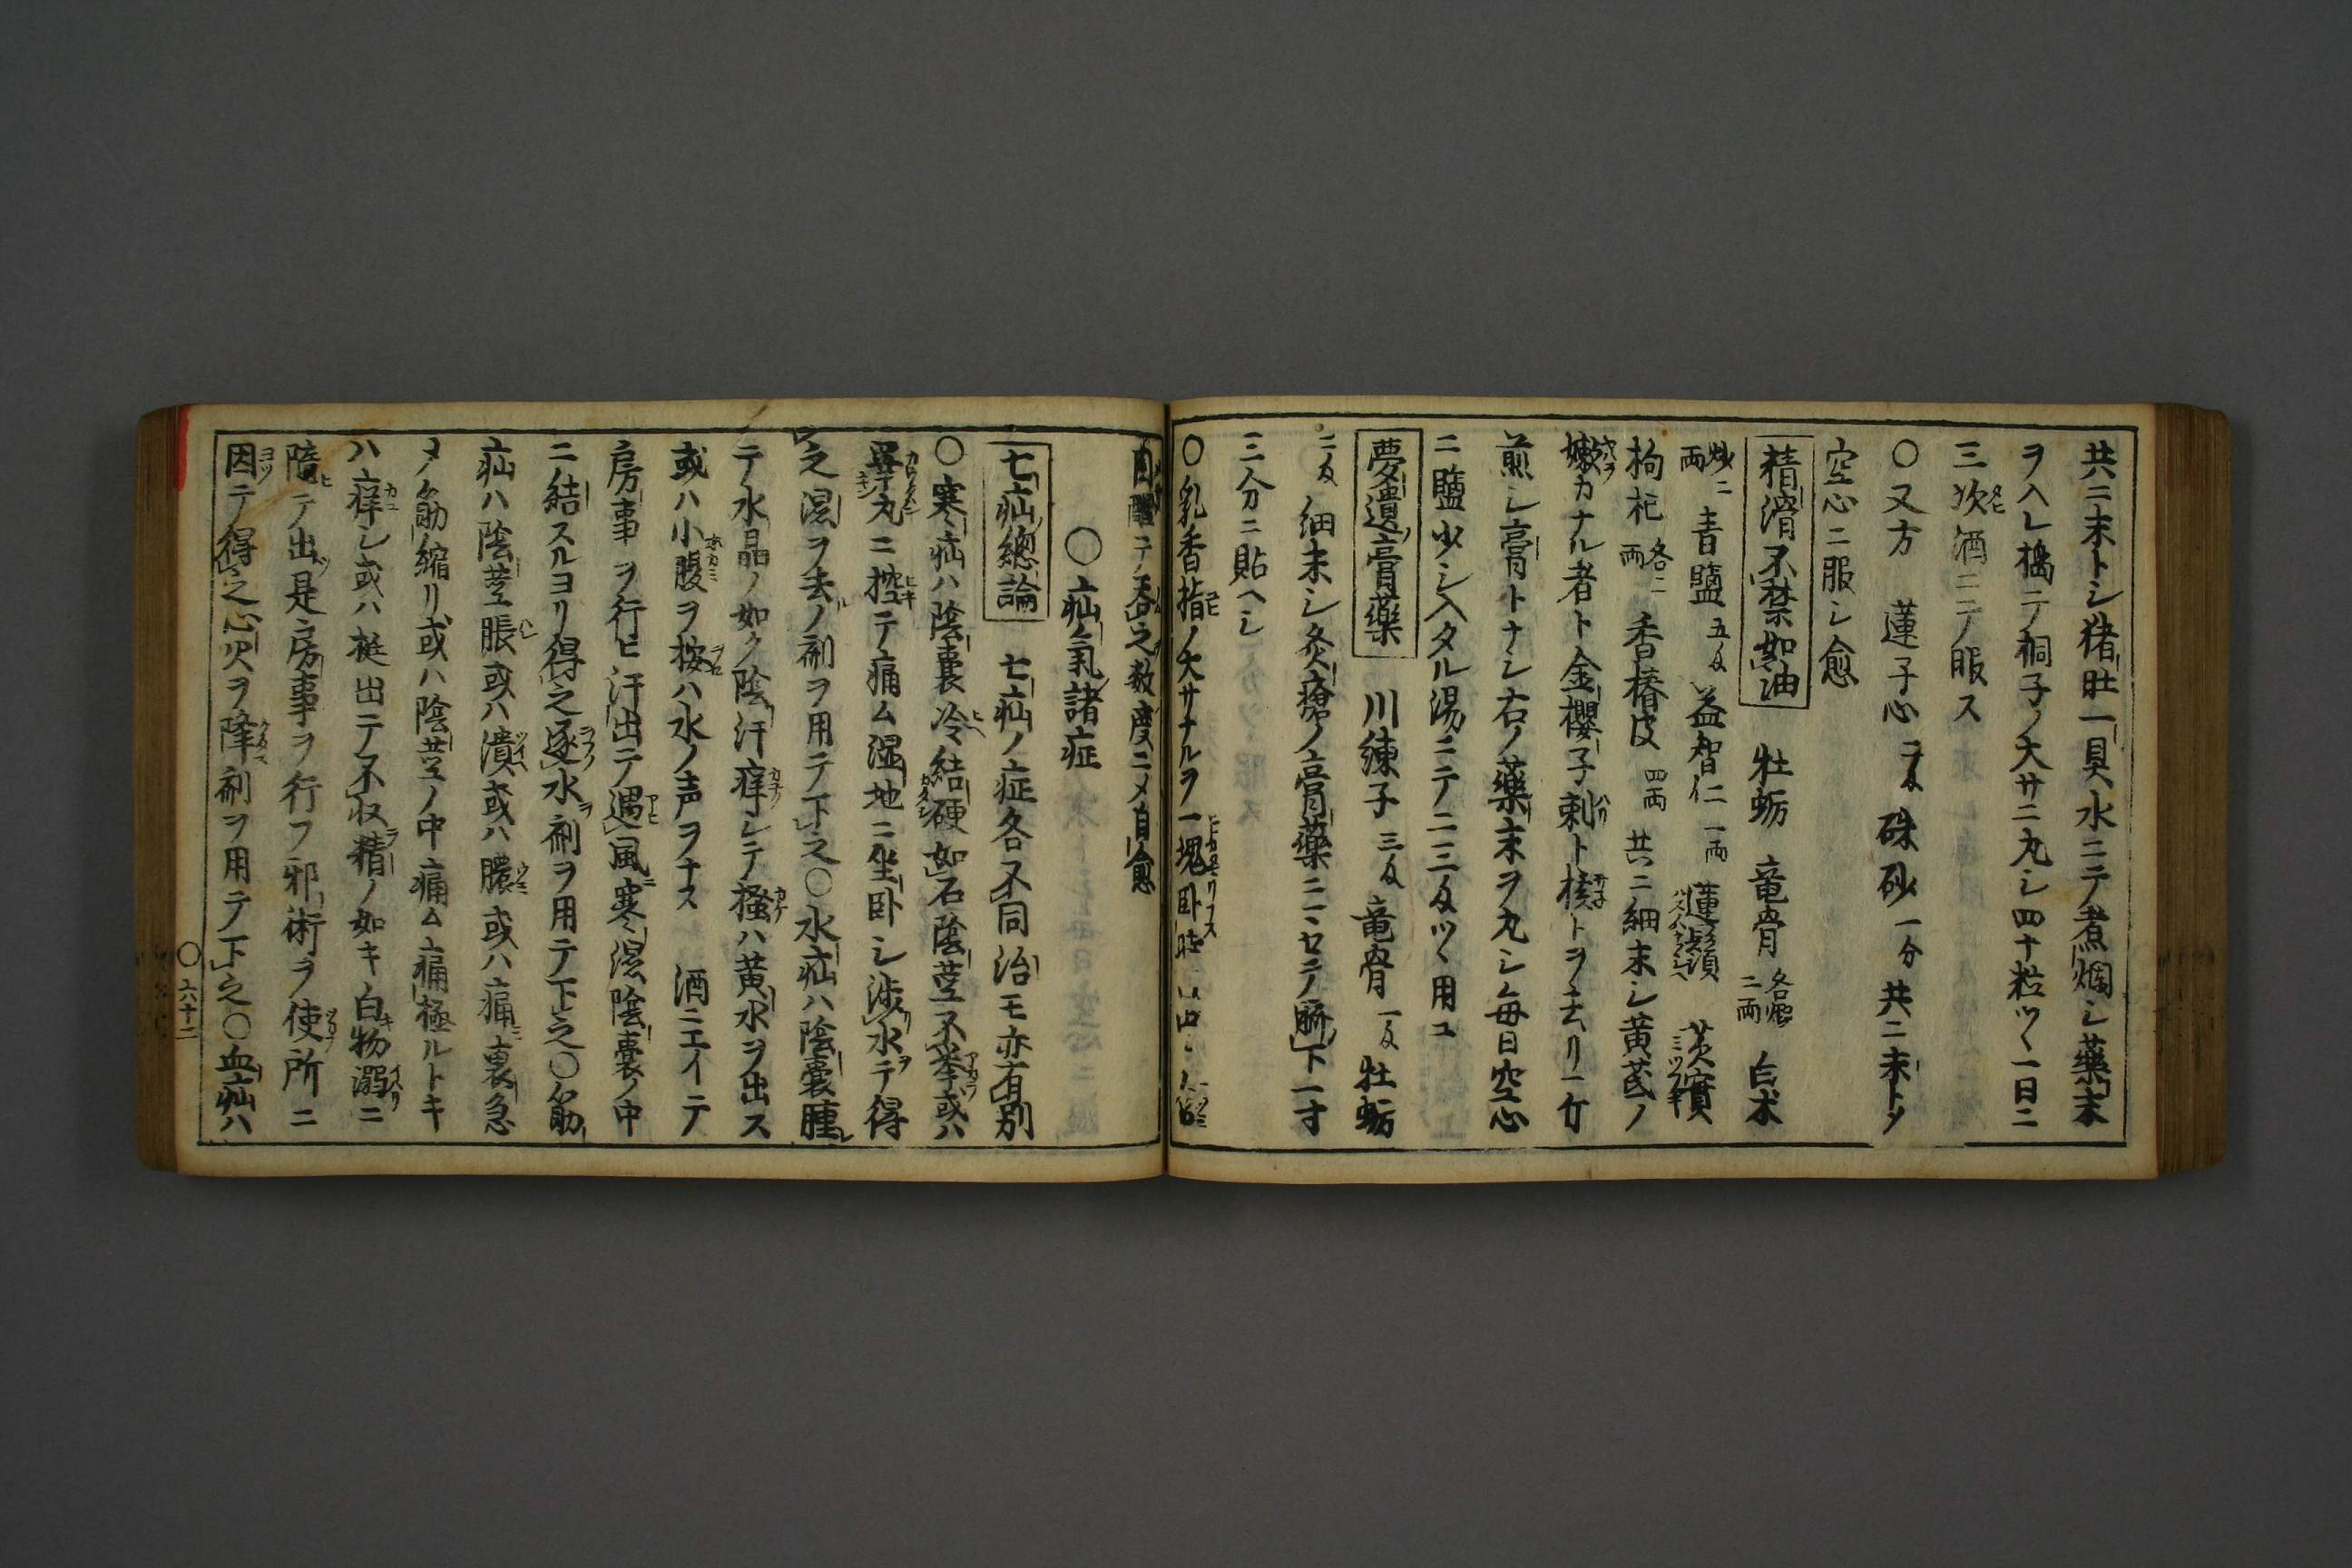 共ニ末トシ猪肚一具水ニテ煮爛シ藥末
ヲ入レ搗ニテ桐子ノ大サニ丸シ四十粒ツヽ一日ニ
三次酒ニテ服ス
〇又方 蓮子心 硃砂一分共ニ末トシ
空心ニ服シ愈
精滑不禁如油 牡蛎 竜骨各二兩 白朮
炒二兩 青鹽 益智仁一兩 蓮鬚 茨實
枸杞各二兩 香椿皮四兩 共ニ細末シ黄茋ノ
嫩カナル者ト金櫻子刺ト核トヲ去リ一斤
煎シ膏トナシ右ノ藥末ヲ丸シ毎日空心
ニ鹽少シ入タル湯ニテ二三ツヽ用ユ
夢遺膏藥 川練子 竜骨 牡蛎
細末シ灸瘡ノ膏藥ニヽセテ臍下一寸
三分ニ貼ヘシ
〇乳香指ノ大サナルヲ一塊臥時
テ呑之数度ニメ自愈
〇疝氣諸症
七疝總論 七疝ノ症各不同治モ亦有別
〇寒疝ハ陰嚢冷結硬如石陰莖不挙或ハ
睾丸ニ控テ痛ム湿地ニ坐臥シ渉水テ得
之湿ヲ去ノ剤ヲ用テ下之〇水疝ハ陰嚢腫
テ水晶ノ如ク陰汗痒シテ掻ハ黄水ヲ出ス
或ハ小腹ヲ按ハ水ノ声ヲナス 酒ニエイテ
房事ヲ行ヒ汗出テ遇風寒湿陰嚢ノ中
ニ結スルヨリ得之逐水剤ヲ用テ下之〇筋
疝ハ陰莖脹或ハ潰或ハ膿或ハ痛裏急
メノ筋縮リ或ハ陰莖ノ中痛ム痛極ルトキ
ハ痒シ或ハ挺出テ不収精ノ如キ白物溺ニ
隨テ出是房事ヲ行フ邪術ヲ使所ニ
因テ得之心火ヲ降剤ヲ用テ下之〇血疝ハ
〇六十二